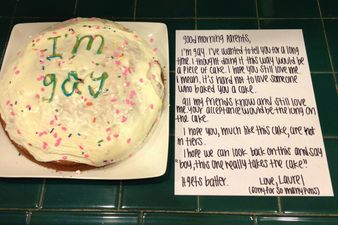 I'm
gay
Good morning Parents,
I'm gay. I've wanted to tell you for a long
time. I thought doing it this way would be
a piece of cake. I hope you still love me.
I mean, it's hard not to love someone
who baked you a cake.
All my friends know and still love
me. Your acceptance would be the icing on
the cake.
I hope you, much like this cake, are not
in tiers.
I hope we can look back on this and say
"boy, this one really takes the cake".
It gets batter.
Love, Laurel
(sorry for so many puns)